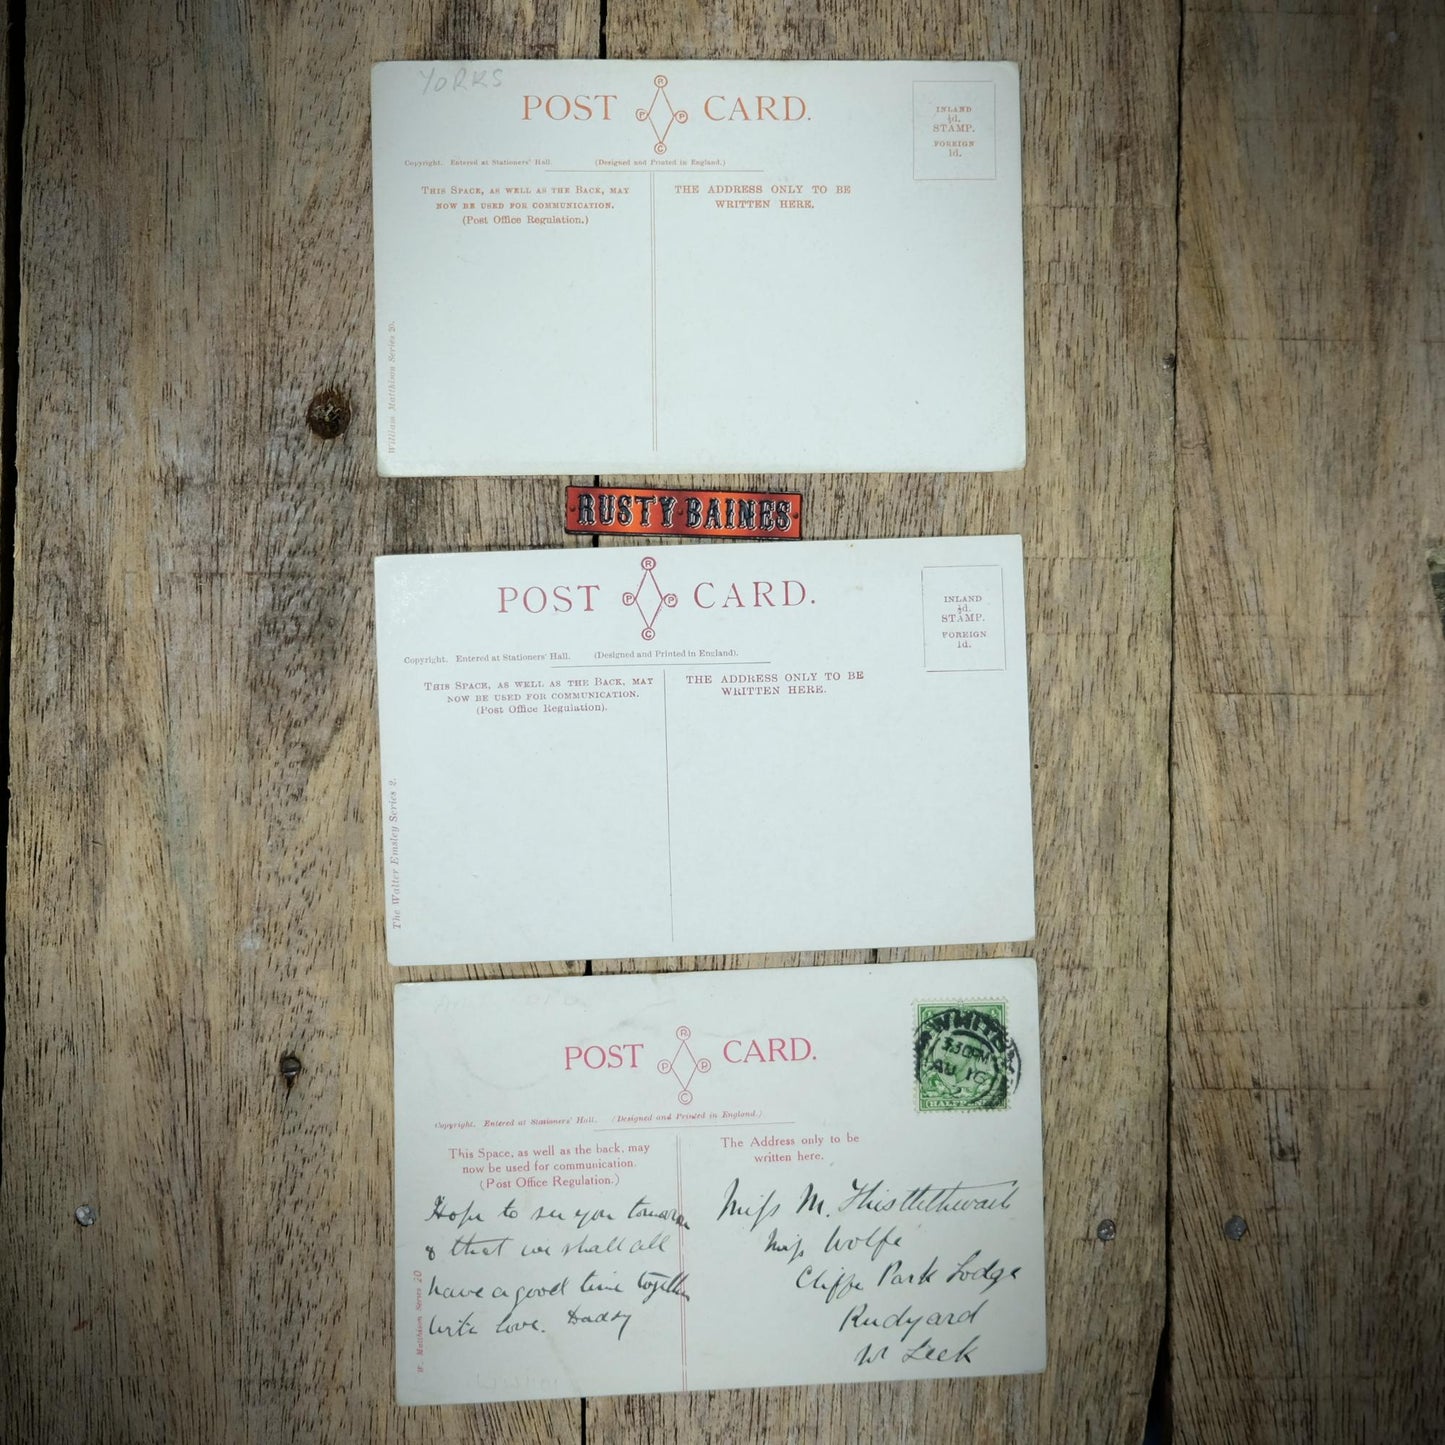 YORKS
POST CARD.
R
P P
C
INLAND
½d.
STAMP.
FOREIGN
1d.
Copyright. Entered at Stationers' Hall. (Designed and Printed in England.)
THIS SPACE, AS WELL AS THE BACK, MAY
NOW BE USED FOR COMMUNICATION.
(Post Office Regulation.)
THE ADDRESS ONLY TO BE
WRITTEN HERE.
William Matthison Series 20.
RUSTY BAINES
POST CARD.
R
P P
C
INLAND
½d.
STAMP.
FOREIGN
1d.
Copyright. Entered at Stationers' Hall. (Designed and Printed in England).
THIS SPACE, AS WELL AS THE BACK, MAY
NOW BE USED FOR COMMUNICATION.
(Post Office Regulation).
THE ADDRESS ONLY TO BE
WRITTEN HERE.
The Walter Emsley Series 2.
POST CARD.
R
P P
C
WHITBY
3 30PM
AU 16
HALFPENNY
Copyright. Entered at Stationers' Hall. (Designed and Printed in England.)
This Space, as well as the back, may
now be used for communication.
(Post Office Regulation.)
The Address only to be
written here.
Hope to see you tomorrow
& that we shall all
have a good time together
With love. Daddy
Miss M. Thistlethwaite
Miss Wolfe
Cliffe Park Lodge
Rudyard
Nr Leek
W. Matthison Series 20